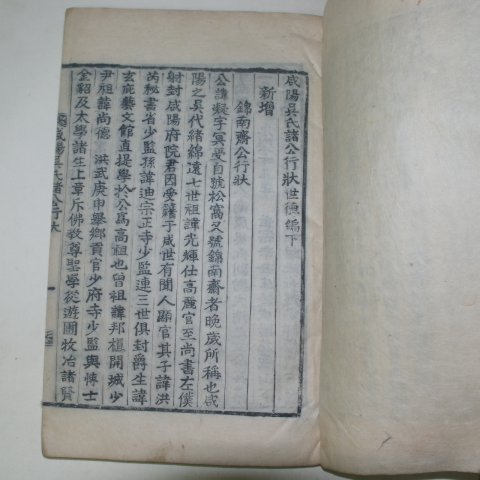 咸陽吳氏諸公行狀世德編下
新增
錦南齋公行狀
公諱凝字冥受自號松窩又號錦南齋者晩歲所稱也咸
陽之吳代緖綿遠七世諱光輝仕高麗官至尚書左僕
射封咸陽府院君因受籍于咸世有聞人顯官其子諱洪
芮秘書省少監孫諱迪宗正寺少監連三世俱封爵生諱
玄庇藝文館直提學於公爲高祖也曾祖諱邦樞開城少
尹祖諱尚德 洪武庚申舉鄉貢官少府寺少監與博士
金貂及太學諸生上章斥佛教尊聖學從遊圃牧冶諸賢
咸陽吳氏諸公行狀